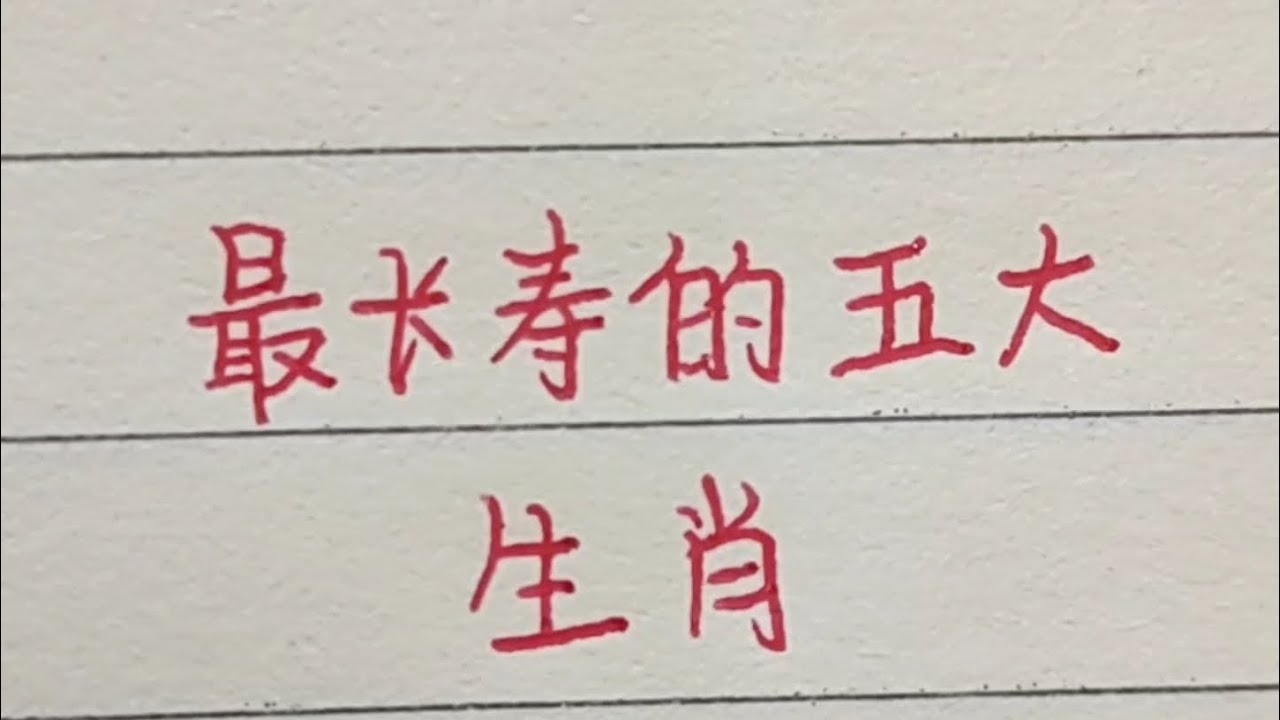 最长寿的五大
生肖